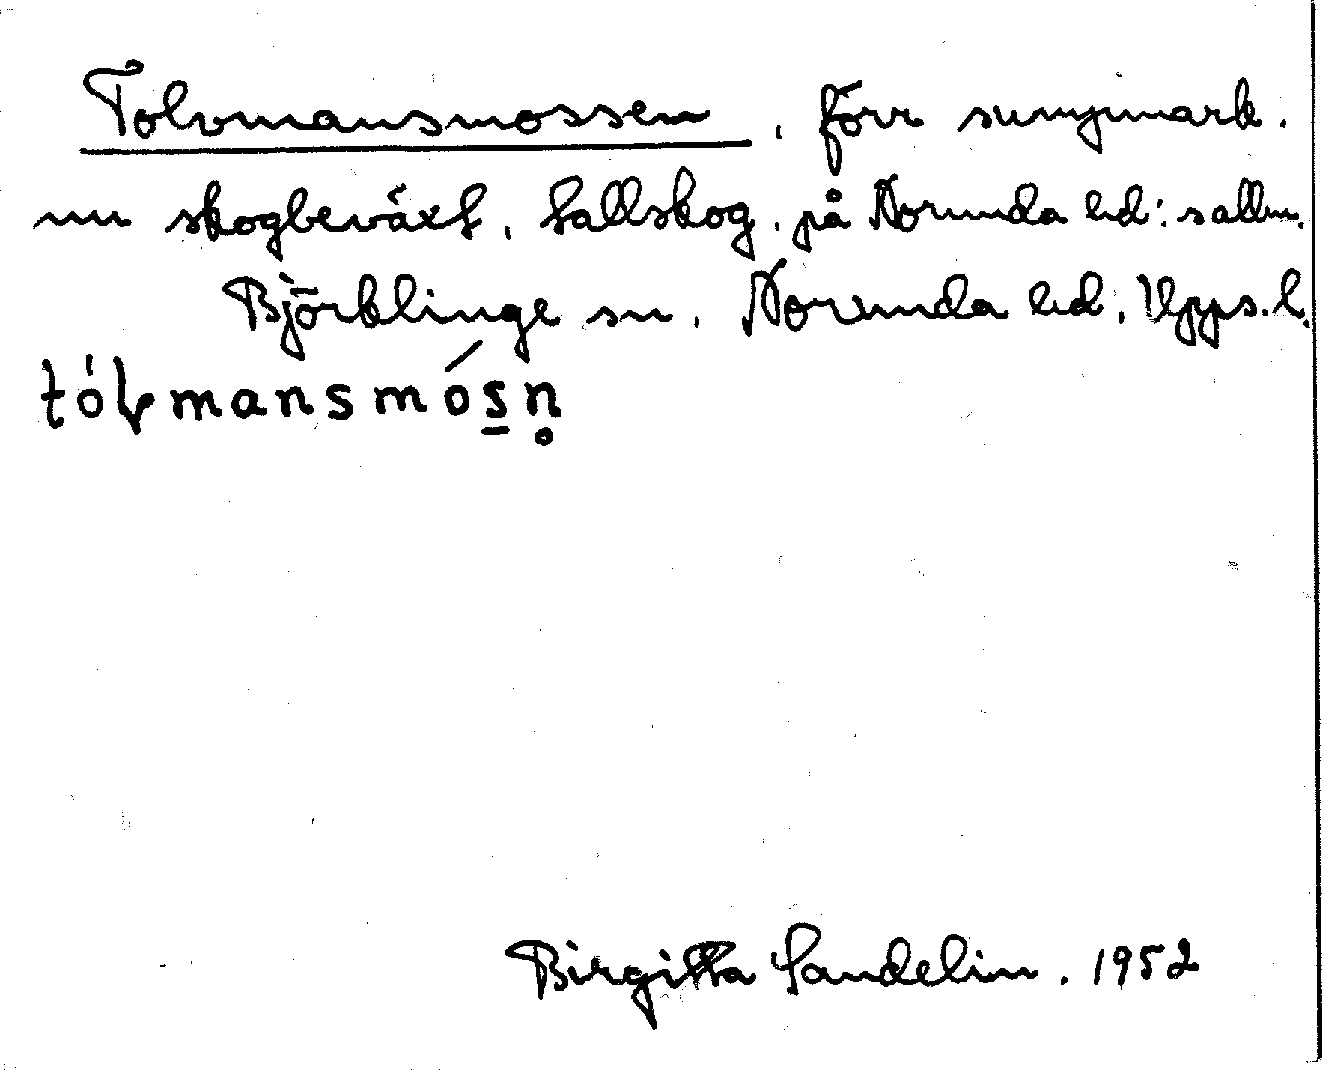 Tolvmansmossen, förr sumpmark,
nu skogbeväxt, tallskog, på Norunda hd:s allm.
Björklinge sn, Norunda hd, Upps.l.
tólvmansmósn̥
Birgitta Sandelin, 1952